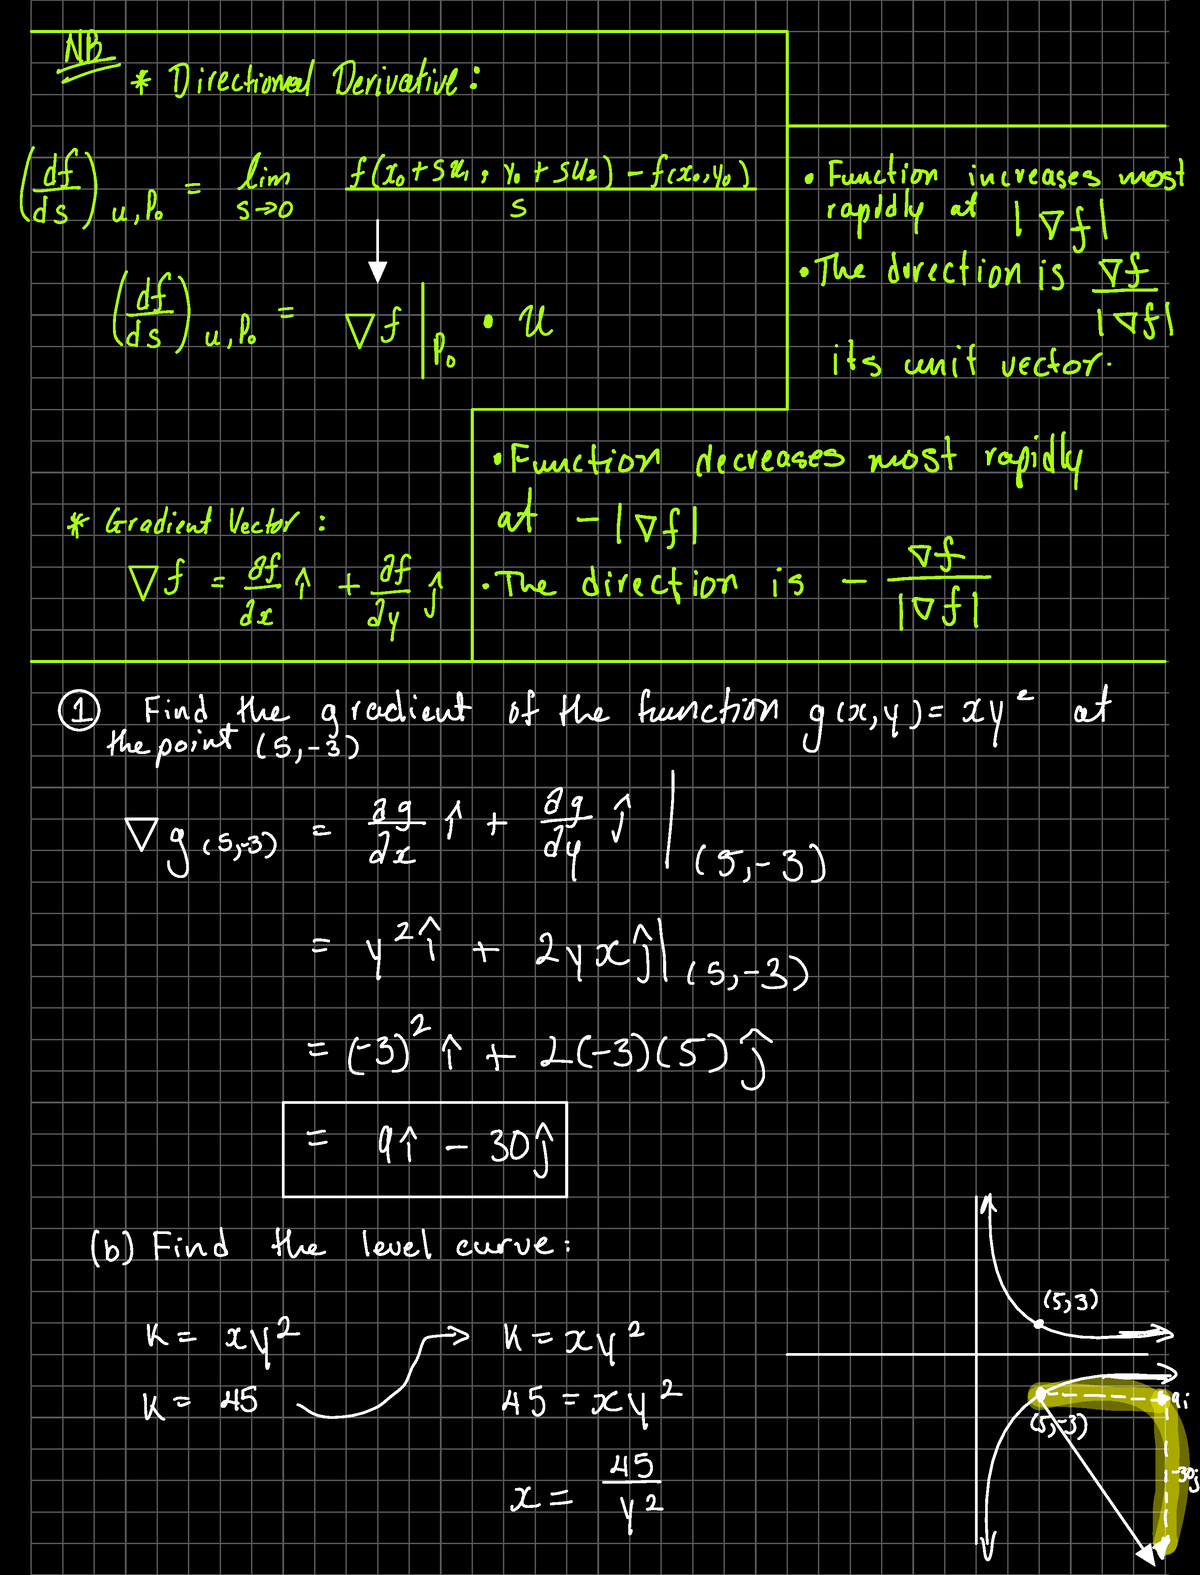 NB
* Directional Derivative:
(df/ds) u, P₀ = lim s→0 f(x₀ + su₁, y₀ + su₂) - f(x₀, y₀) / s
(df/ds) u, P₀ = ∇f |P₀ • u
• Function increases most
rapidly at |∇f|
• The direction is ∇f / |∇f|
its unit vector.
• Function decreases most rapidly
at - |∇f|
• The direction is - ∇f / |∇f|
* Gradient Vector:
∇f = ∂f/∂x î + ∂f/∂y ĵ
① Find the gradient of the function g(x,y) = xy² at
the point (5,-3)
∇g (5,-3) = ∂g/∂x î + ∂g/∂y ĵ | (5,-3)
= y² î + 2yx ĵ | (5,-3)
= (-3)² î + 2(-3)(5) ĵ
= 9î - 30ĵ
(b) Find the level curve:
K = xy²
K = 45
K = xy²
45 = xy²
x = 45 / y²
(5,3)
(5,-3)
9i
-30j